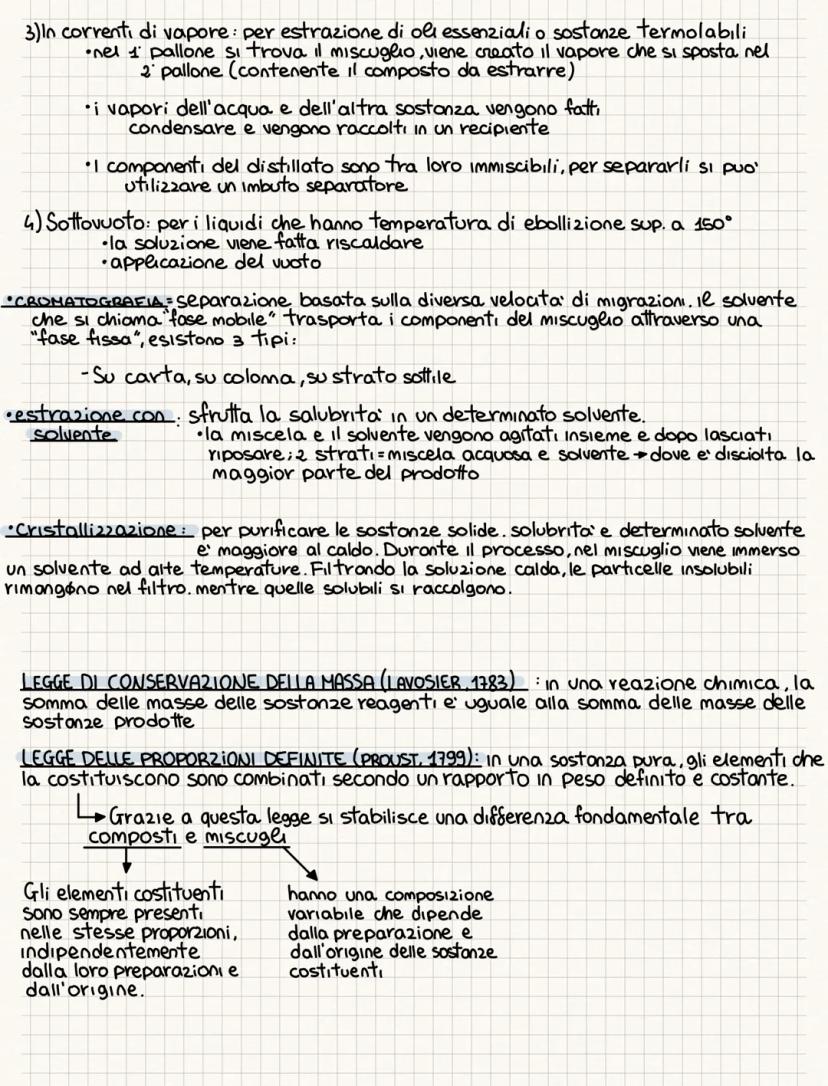 3)In correnti di vapore: per estrazione di oli essenziali o sostanze termolabili
•nel 1° pallone si trova il miscuglio, viene creato il vapore che si sposta nel
2° pallone (contenente il composto da estrarre)
•i vapori dell'acqua e dell'altra sostanza vengono fatti
condensare e vengono raccolti in un recipiente
•I componenti del distillato sono tra loro immiscibili, per separarli si puo'
utilizzare un imbuto separatore
4) Sottovuoto: per i liquidi che hanno temperatura di ebollizione sup. a 150°
•la soluzione viene fatta riscaldare
•applicazione del vuoto
•CROMATOGRAFIA= separazione basata sulla diversa velocita' di migrazioni. il solvente
che si chiama "fase mobile" trasporta i componenti del miscuglio attraverso una
"fase fissa", esistono 3 tipi:
-Su carta, su colonna, su strato sottile
•estrazione con : sfrutta la salubrita' in un determinato solvente.
solvente •la miscela e il solvente vengono agitati insieme e dopo lasciati
riposare; 2 strati = miscela acquosa e solvente → dove e' disciolta la
maggior parte del prodotto
•Cristallizzazione: per purificare le sostanze solide. solubrita' e determinato solvente
e' maggiore al caldo. Durante il processo, nel miscuglio viene immerso
un solvente ad alte temperature. Filtrando la soluzione calda, le particelle insolubili
rimangono nel filtro. mentre quelle solubili si raccolgono.
LEGGE DI CONSERVAZIONE DELLA MASSA (LAVOSIER, 1783) : in una reazione chimica, la
somma delle masse delle sostanze reagenti e' uguale alla somma delle masse delle
sostanze prodotte
LEGGE DELLE PROPORZIONI DEFINITE (PROUST, 1799): in una sostanza pura, gli elementi che
la costituiscono sono combinati secondo un rapporto in peso definito e costante.
→ Grazie a questa legge si stabilisce una differenza fondamentale tra
composti e miscugli
Gli elementi costituenti
sono sempre presenti
nelle stesse proporzioni,
indipendentemente
dalla loro preparazioni e
dall'origine.
hanno una composizione
variabile che dipende
dalla preparazione e
dall'origine delle sostanze
costituenti